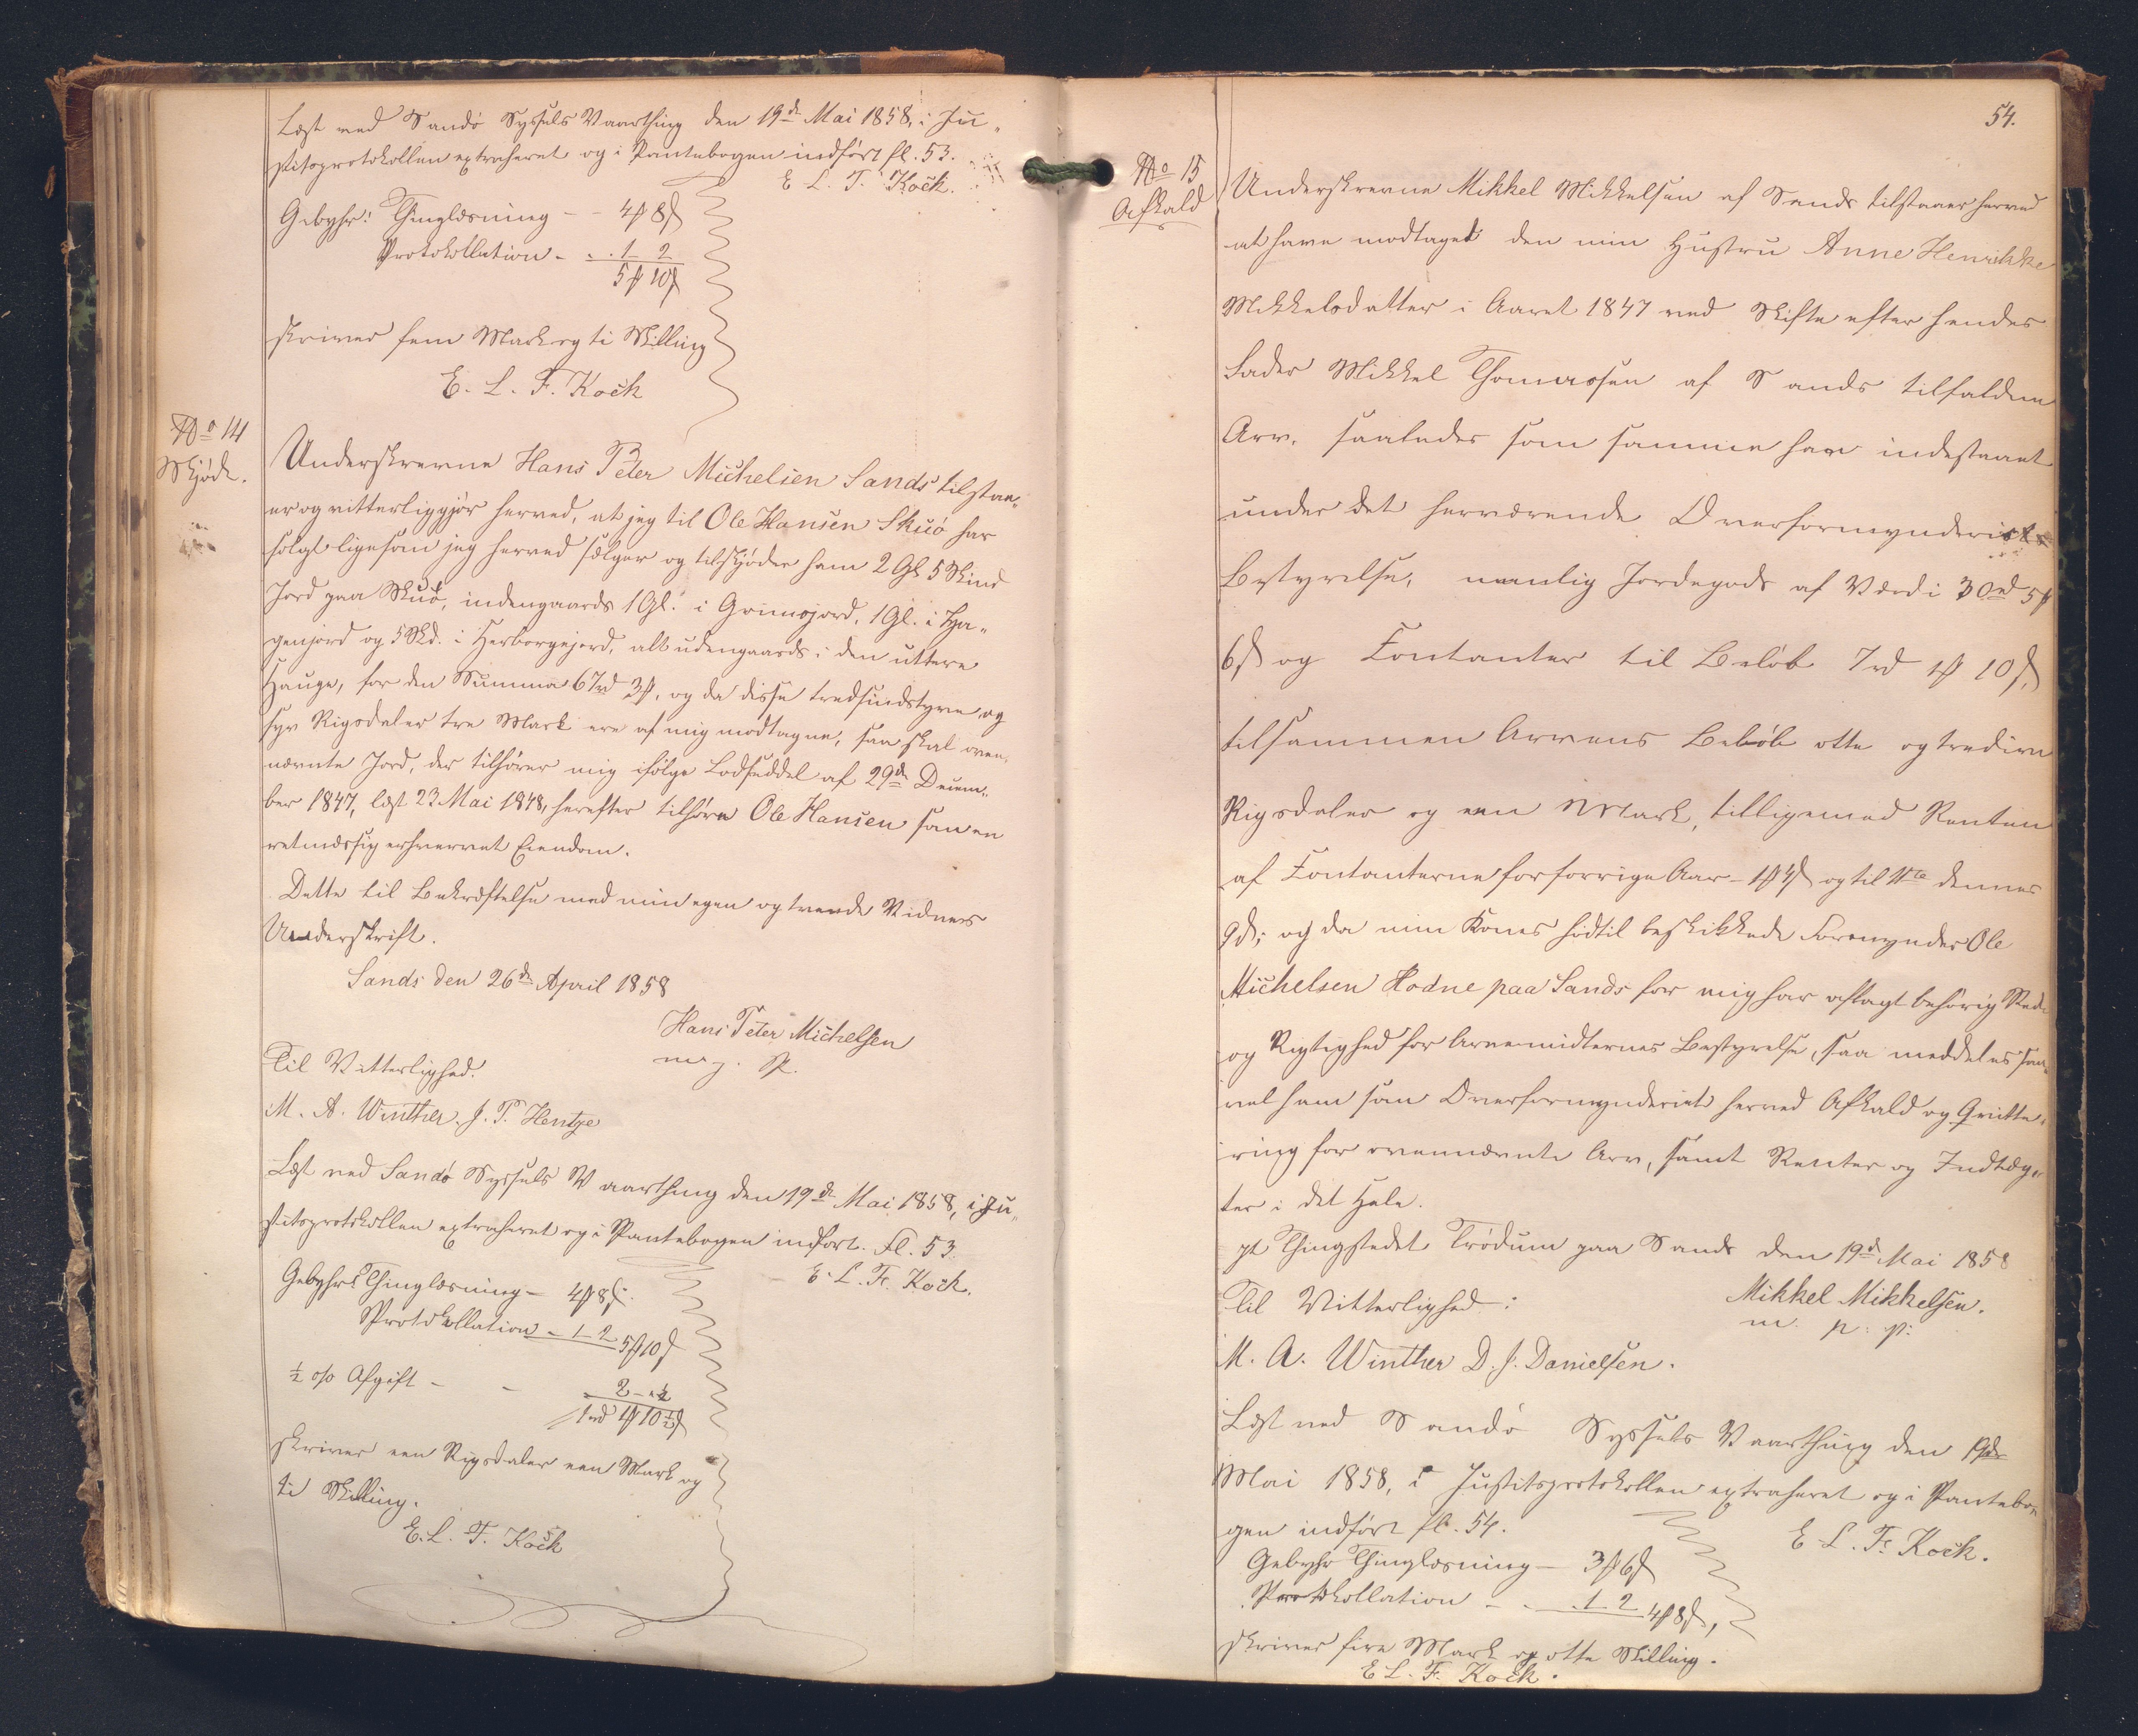 Læst ved Sandø Syssels Vaarthing den 19de Mai 1858, i Ju„
stitsprotokollen extraheret og i Pantebogen indført fl. 53.
E. L. F. Kock.
Gebyhr: Thinglæsning - - 4 ₻ 8 ß
Protokollation - - . 1 2
5 ₻ 10 ß
skriver fem Mark og ti Skilling
E. L. F. Kock
No 14
Skjøde.
Underskrevne Hans Peter Michelsen Sands tilstaa„
er og vitterliggjør herved, at jeg til Ole Hansen Skuø har
solgt ligesom jeg herved sælger og tilskjøder ham 2 Gl 5 Skind
Jord paa Skuø, indengaards 1 Gl. i Grimsjord, 1 Gl. i Ha„
genjord og 5 Skd. i Herborgejord, alt udengaards i den uttere
Hauge, for den Summa 67 rd 3 ₻, og da disse tredsindstyve og
syv Rigsdaler tre Mark ere af mig modtagne, saa skal oven„
nævnte Jord, der tilhører mig ifølge Lodseddel af 29de Decem„
ber 1847, læst 23 Mai 1848, herefter tilhøre Ole Hansen som en
retmæssig erhvervet Eiendom.
Dette til Bekræftelse med min egen og tvende Vidners
Underskrift.
Sands den 26de April 1858
Hans Peter Michelsen
m. f. P.
Til Vitterlighed.
M. A. Winther. J. P. Hentze
Læst ved Sandø Syssels Vaarthing den 19de Mai 1858, i Ju„
stitsprotokollen extraheret og i Pantebogen indført. Fl. 53.
E. L. F. Kock.
Gebyhr: Thinglæsning - 4 ₻ 8 ß.
Protokollation - 1 - 2 5 ₻ 10 ß
½ o/o Afgift - - 2 - „ ½
1 rd 1 ₻ 10½ ß
skriver een Rigsdaler een Mark og
ti Skilling.
E. L. F. Kock
54.
No 15
Afkald
Underskrevne Mikkel Mikkelsen af Sands tilstaaer herved
at have modtaget den min Hustru Anne Henrikke
Mikkelsdatter i Aaret 1847 ved Skifte efter hendes
Fader Mikkel Thomassen af Sands tilfaldne
Arv, saaledes som samme har indestaaet
under det herværende Overformynderies
Bestyrelse, nemlig Jordegods af Værdi 30 rd 5 ₻
6 ß og Contanter til Beløb 7 rd 1 ₻ 10 ß,
tilsammen Arvens Beløb otte og tredive
Rigsdaler og een Mark, tilligemed Renten
af Contanterne for forrige Aar - 1 ₻ 4 ß og til 11te dennes
9 ß; og da min Kones hidtil beskikkede Formynder Ole
Michelsen Hodne paa Sands for mig har aflagt behørig Rede
og Rigtighed for Arvemidlernes Bestyrelse, saa meddeles saa„
vel ham som Overformynderiet herved Afkald og Qvitte„
ring for ovennævnte Arv, samt Renter og Indtæg„
ter i det Hele.
pt Thingstedet Trødum paa Sands den 19d Mai 1858
Mikkel Mikkelsen.
m. p: p:
Til Vitterlighed:
M. A. Winther D. J. Danielsen.
Læst ved Sandø Syssels Vaarthing den 19de
Mai 1858, i Justitsprotokollen extraheret og i Pantebo„
gen indført fl. 54.
E. L. F. Kock.
Gebyhr Thinglæsning - 3 ₻ 6 ß
Protokollation - - . 1 - 2 4 ₻ 8 ß,
skriver fire Mark og otte Skilling.
E. L. F. Kock.